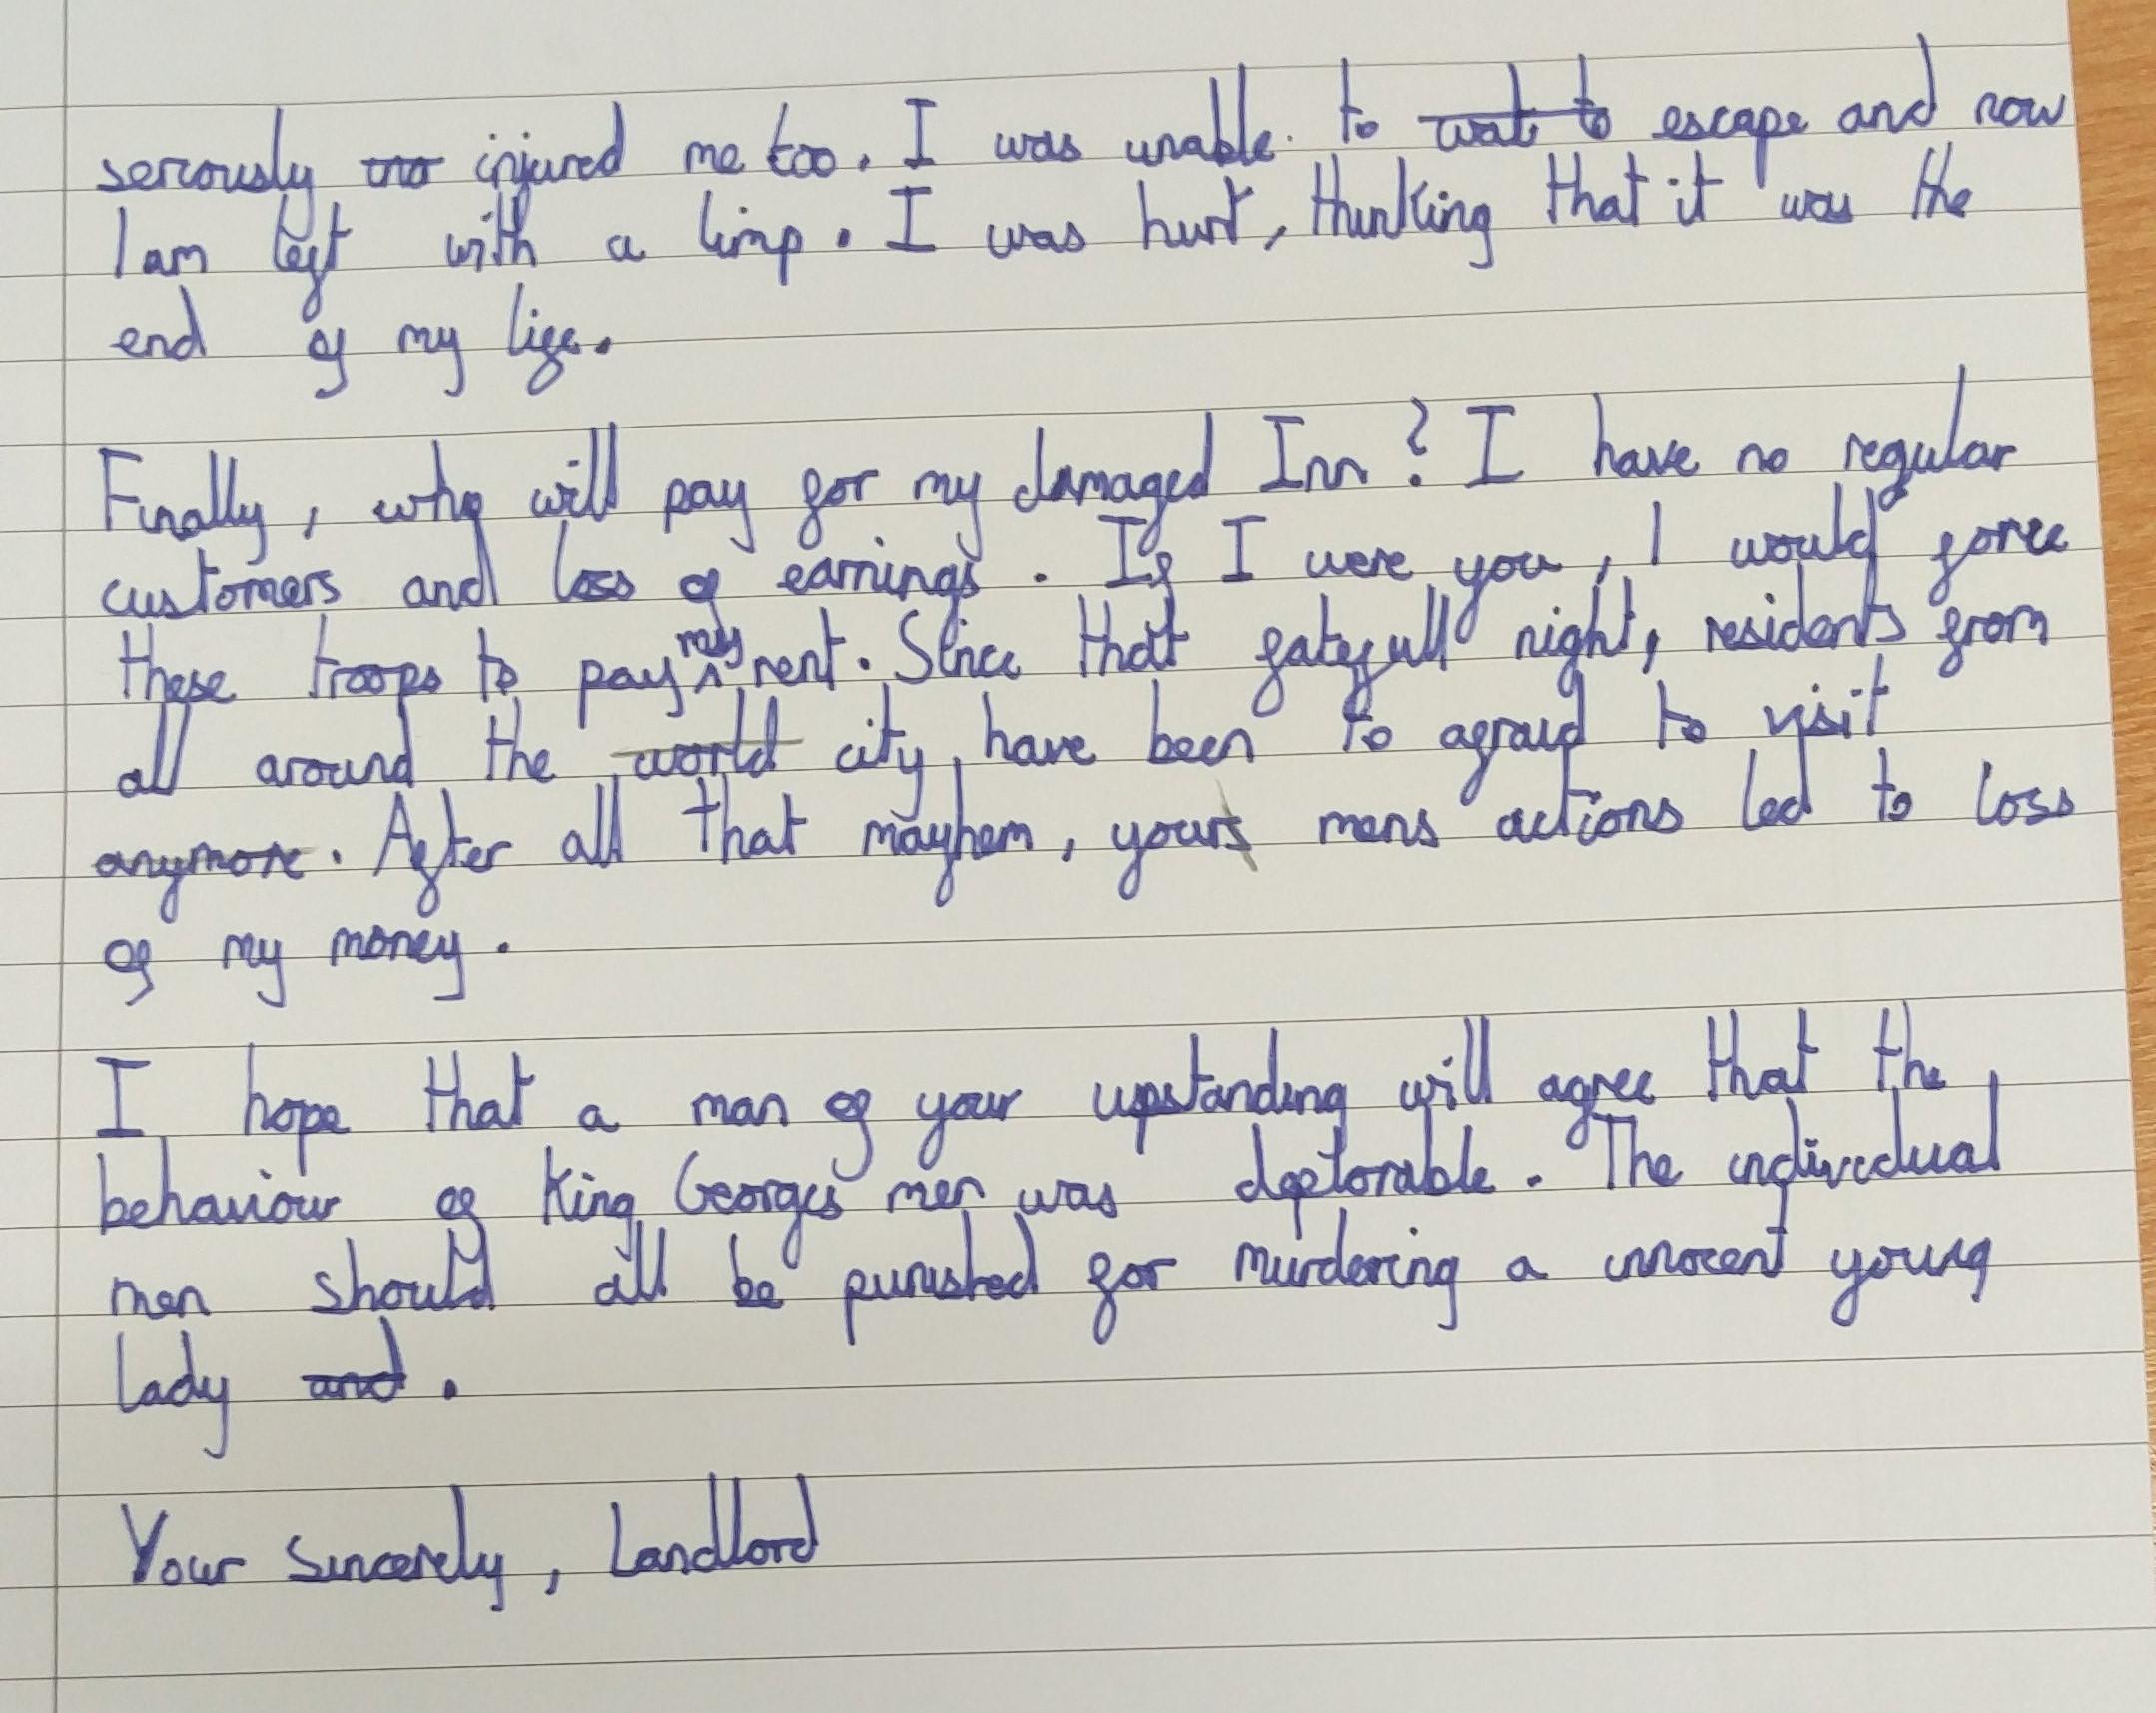 seriously injured me too. I was unable. to escape and now
I am left with a limp. I was hurt, thinking that it was the
end of my life.
Finally, who will pay for my damaged Inn? I have no regular
customers and loss of earnings. If I were you, I would force
these troops to pay my rent. Since that fatefull night, residents from
all around the city, have been to afraid to visit
anymore. After all that mayhem, your mens actions led to loss
of my money.
I hope that a man of your upstanding will agree that the
behaviour of King Georges men was deplorable. The individual
men should all be punished for murdering a innocent young
lady.
Your sincerely, Landlord